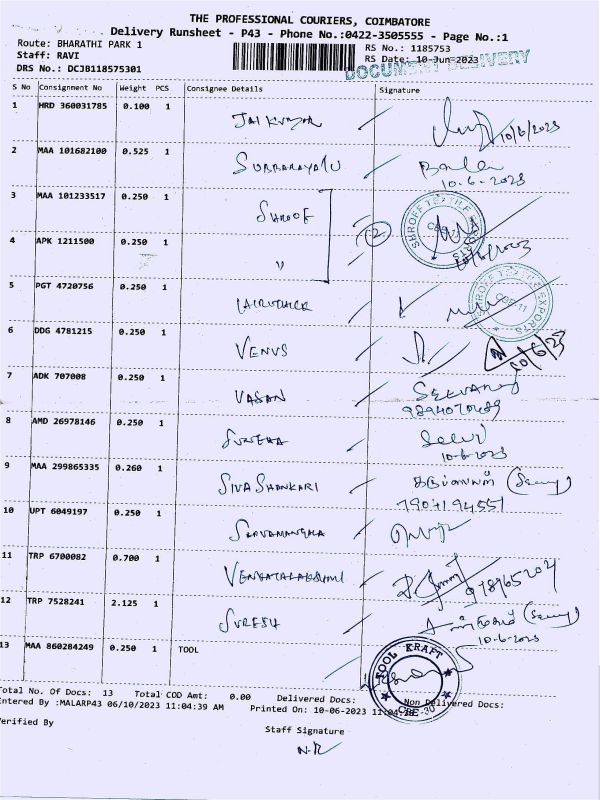 THE PROFESSIONAL COURIERS, COIMBATORE
Delivery Runsheet - P43 - Phone No.:0422-3505555 - Page No.:1
Route: BHARATHI PARK 1 RS No.: 1185753
Staff: RAVI RS Date: 10-Jun-2023
DRS No.: DCJB118575301 DOCUMENT DELIVERY
S No Consignment No Weight PCS Consignee Details Signature
1 HRD 360031785 0.100 1 JAIKUMAR 10/6/2023
2 MAA 101682100 0.525 1 SUBBARAYALU
10-6-2023
3 MAA 101233517 0.250 1 SHROFF SHROFF TEXTILE EXPORTS
4 APK 1211500 0.250 1 " 2 10/6/2023
5 PGT 4720756 0.250 1 SHROFF TEXTILE EXPORTS CBE-11
6 DDG 4781215 0.250 1 VENUS 10/6/23
7 ADK 707008 0.250 1 VASAN SELVARAJ
8 AMD 26978146 0.250 1 SUREKHA Selvi
10-6-2023
9 MAA 299865335 0.260 1 SIVA SHANKARI
10 UPT 6049197 0.250 1 SARVAMANGALA
11 TRP 6700082 0.700 1 VENKATALAKSHMI
12 TRP 7528241 2.125 1 SURESH
10-6-2023
13 MAA 860284249 0.250 1 TOOL TOOL KRAFT CBE-30
Total No. Of Docs: 13 Total COD Amt: 0.00 Delivered Docs: Non Delivered Docs:
Entered By :MALARP43 06/10/2023 11:04:39 AM Printed On: 10-06-2023
Verified By Staff Signature
N.R